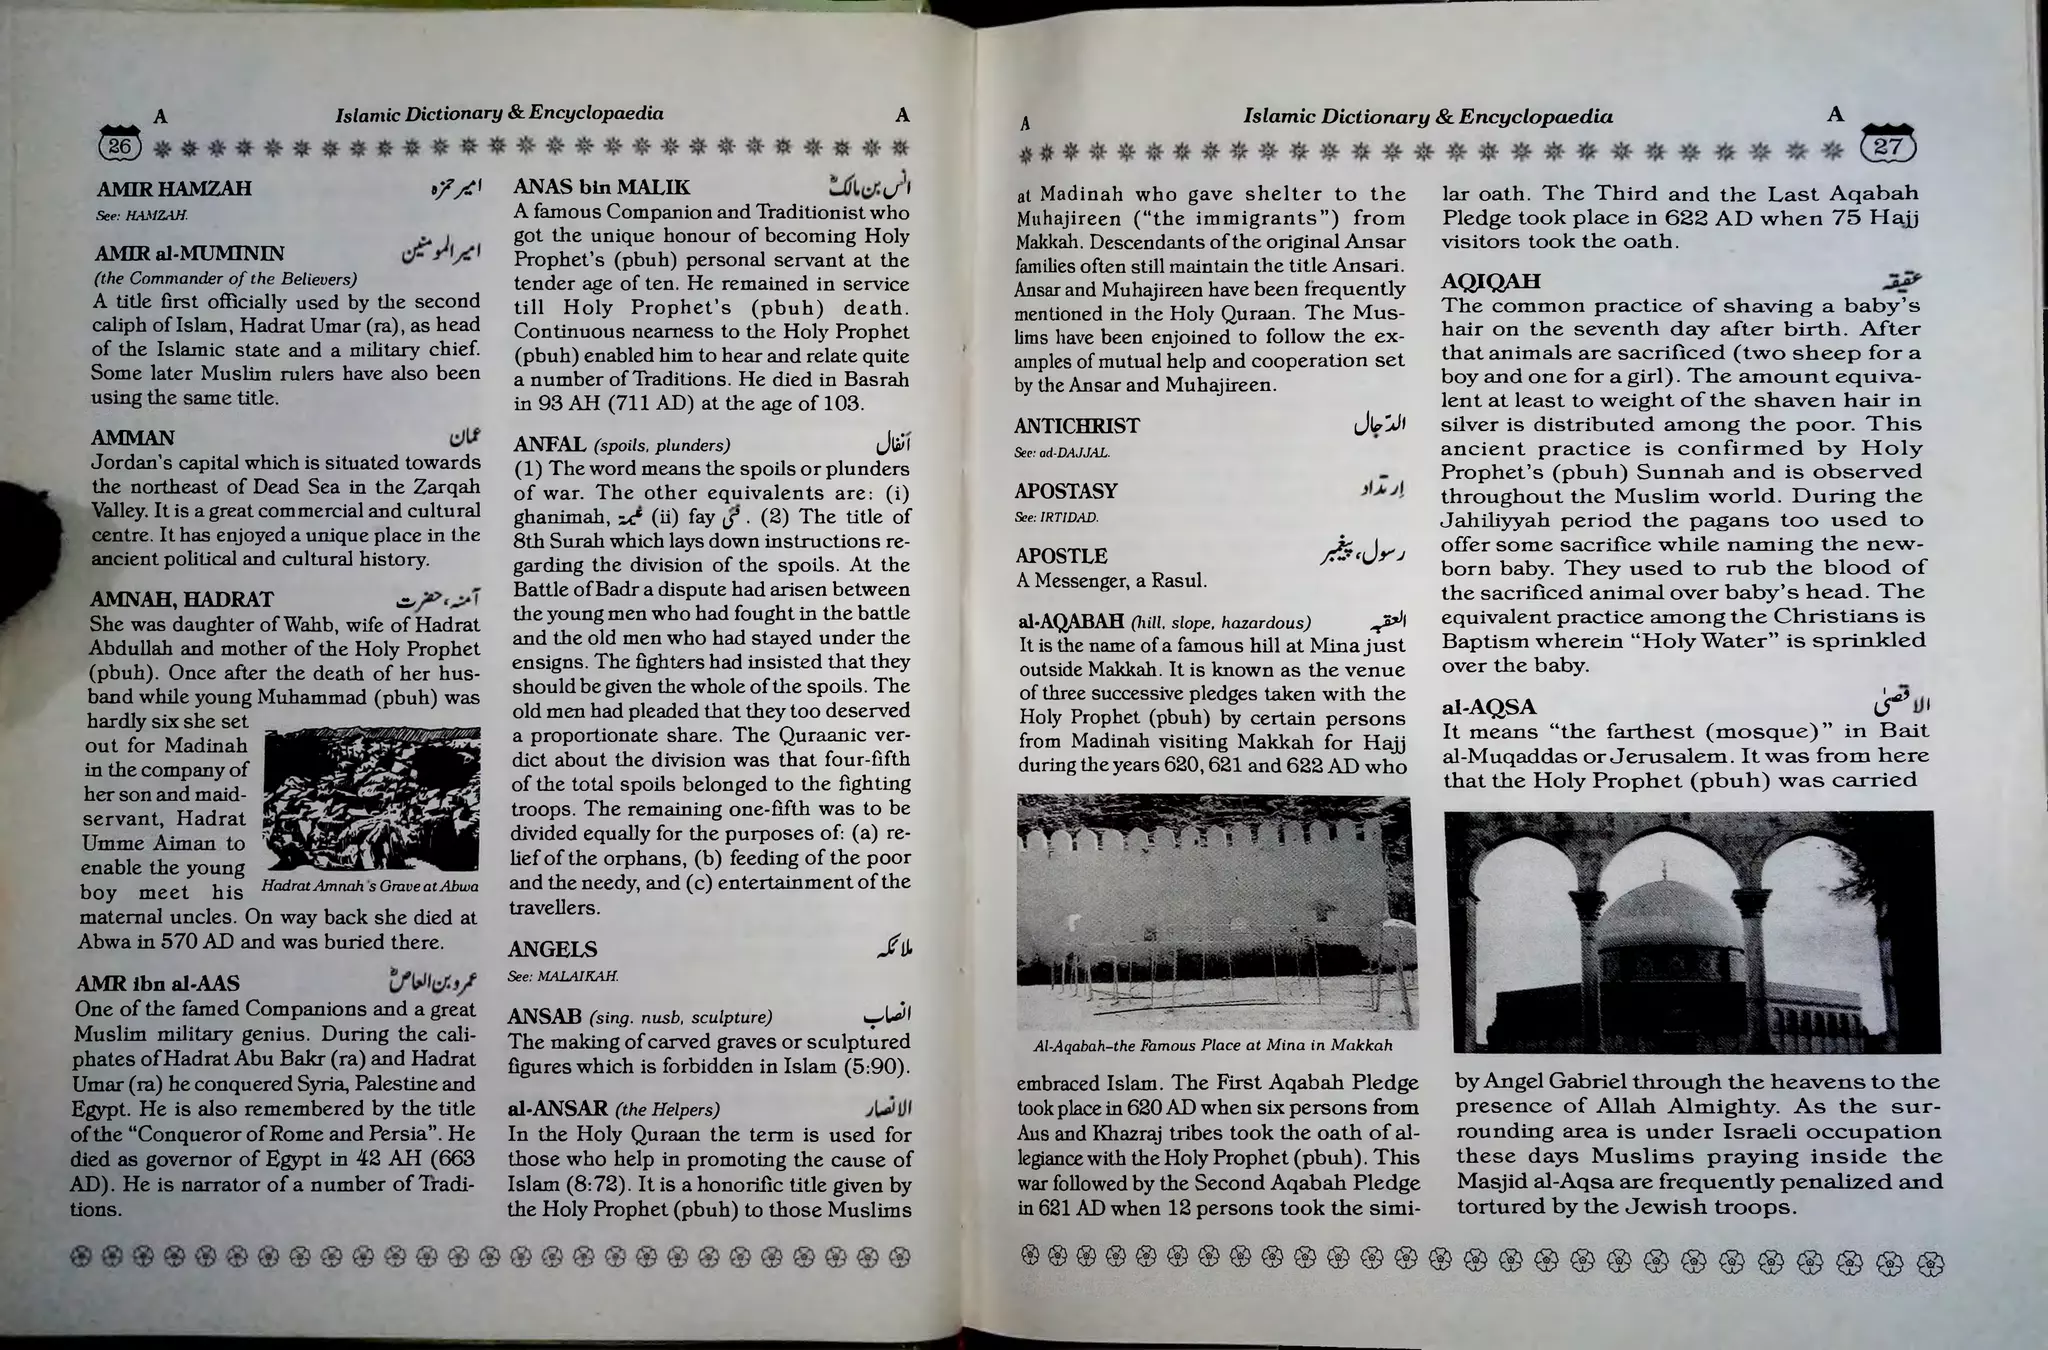 A Islamic Dictionary & Encyclopaedia A
26
AMIR HAMZAH امیر حمزہ
See: HAMZAH.
AMIR al-MUMININ امیر المومنین
(the Commander of the Believers)
A title first officially used by the second
caliph of Islam, Hadrat Umar (ra), as head
of the Islamic state and a military chief.
Some later Muslim rulers have also been
using the same title.
AMMAN عمان
Jordan's capital which is situated towards
the northeast of Dead Sea in the Zarqah
Valley. It is a great commercial and cultural
centre. It has enjoyed a unique place in the
ancient political and cultural history.
AMNAH, HADRAT آمنہ، حضرت
She was daughter of Wahb, wife of Hadrat
Abdullah and mother of the Holy Prophet
(pbuh). Once after the death of her hus-
band while young Muhammad (pbuh) was
hardly six she set
out for Madinah
in the company of
her son and maid-
servant, Hadrat
Umme Aiman to
enable the young
boy meet his
Hadrat Amnah's Grave at Abwa
maternal uncles. On way back she died at
Abwa in 570 AD and was buried there.
AMR ibn al-AAS عمرو بن العاصؓ
One of the famed Companions and a great
Muslim military genius. During the cali-
phates of Hadrat Abu Bakr (ra) and Hadrat
Umar (ra) he conquered Syria, Palestine and
Egypt. He is also remembered by the title
of the “Conqueror of Rome and Persia”. He
died as governor of Egypt in 42 AH (663
AD). He is narrator of a number of Tradi-
tions.
ANAS bin MALIK انس بن مالکؓ
A famous Companion and Traditionist who
got the unique honour of becoming Holy
Prophet's (pbuh) personal servant at the
tender age of ten. He remained in service
till Holy Prophet's (pbuh) death.
Continuous nearness to the Holy Prophet
(pbuh) enabled him to hear and relate quite
a number of Traditions. He died in Basrah
in 93 AH (711 AD) at the age of 103.
ANFAL (spoils, plunders) أنفال
(1) The word means the spoils or plunders
of war. The other equivalents are: (i)
ghanimah, غنیمۃ (ii) fay فئ . (2) The title of
8th Surah which lays down instructions re-
garding the division of the spoils. At the
Battle of Badr a dispute had arisen between
the young men who had fought in the battle
and the old men who had stayed under the
ensigns. The fighters had insisted that they
should be given the whole of the spoils. The
old men had pleaded that they too deserved
a proportionate share. The Quraanic ver-
dict about the division was that four-fifth
of the total spoils belonged to the fighting
troops. The remaining one-fifth was to be
divided equally for the purposes of: (a) re-
lief of the orphans, (b) feeding of the poor
and the needy, and (c) entertainment of the
travellers.
ANGELS ملائکہ
See: MALAIKAH.
ANSAB (sing. nusb, sculpture) انصاب
The making of carved graves or sculptured
figures which is forbidden in Islam (5:90).
al-ANSAR (the Helpers) الانصار
In the Holy Quraan the term is used for
those who help in promoting the cause of
Islam (8:72). It is a honorific title given by
the Holy Prophet (pbuh) to those Muslims
A Islamic Dictionary & Encyclopaedia A
27
at Madinah who gave shelter to the
Muhajireen (“the immigrants”) from
Makkah. Descendants of the original Ansar
families often still maintain the title Ansari.
Ansar and Muhajireen have been frequently
mentioned in the Holy Quraan. The Mus-
lims have been enjoined to follow the ex-
amples of mutual help and cooperation set
by the Ansar and Muhajireen.
ANTICHRIST الدّجال
See: ad-DAJJAL.
APOSTASY إرتداد
See: IRTIDAD.
APOSTLE رسول، پیغمبر
A Messenger, a Rasul.
al-AQABAH (hill, slope, hazardous) العقبہ
It is the name of a famous hill at Mina just
outside Makkah. It is known as the venue
of three successive pledges taken with the
Holy Prophet (pbuh) by certain persons
from Madinah visiting Makkah for Hajj
during the years 620, 621 and 622 AD who
Al-Aqabah–the Famous Place at Mina in Makkah
embraced Islam. The First Aqabah Pledge
took place in 620 AD when six persons from
Aus and Khazraj tribes took the oath of al-
legiance with the Holy Prophet (pbuh). This
war followed by the Second Aqabah Pledge
in 621 AD when 12 persons took the simi-
lar oath. The Third and the Last Aqabah
Pledge took place in 622 AD when 75 Hajj
visitors took the oath.
AQIQAH عقیقہ
The common practice of shaving a baby's
hair on the seventh day after birth. After
that animals are sacrificed (two sheep for a
boy and one for a girl). The amount equiva-
lent at least to weight of the shaven hair in
silver is distributed among the poor. This
ancient practice is confirmed by Holy
Prophet's (pbuh) Sunnah and is observed
throughout the Muslim world. During the
Jahiliyyah period the pagans too used to
offer some sacrifice while naming the new-
born baby. They used to rub the blood of
the sacrificed animal over baby's head. The
equivalent practice among the Christians is
Baptism wherein “Holy Water” is sprinkled
over the baby.
al-AQSA الاقصیٰ
It means “the farthest (mosque)” in Bait
al-Muqaddas or Jerusalem. It was from here
that the Holy Prophet (pbuh) was carried
by Angel Gabriel through the heavens to the
presence of Allah Almighty. As the sur-
rounding area is under Israeli occupation
these days Muslims praying inside the
Masjid al-Aqsa are frequently penalized and
tortured by the Jewish troops.